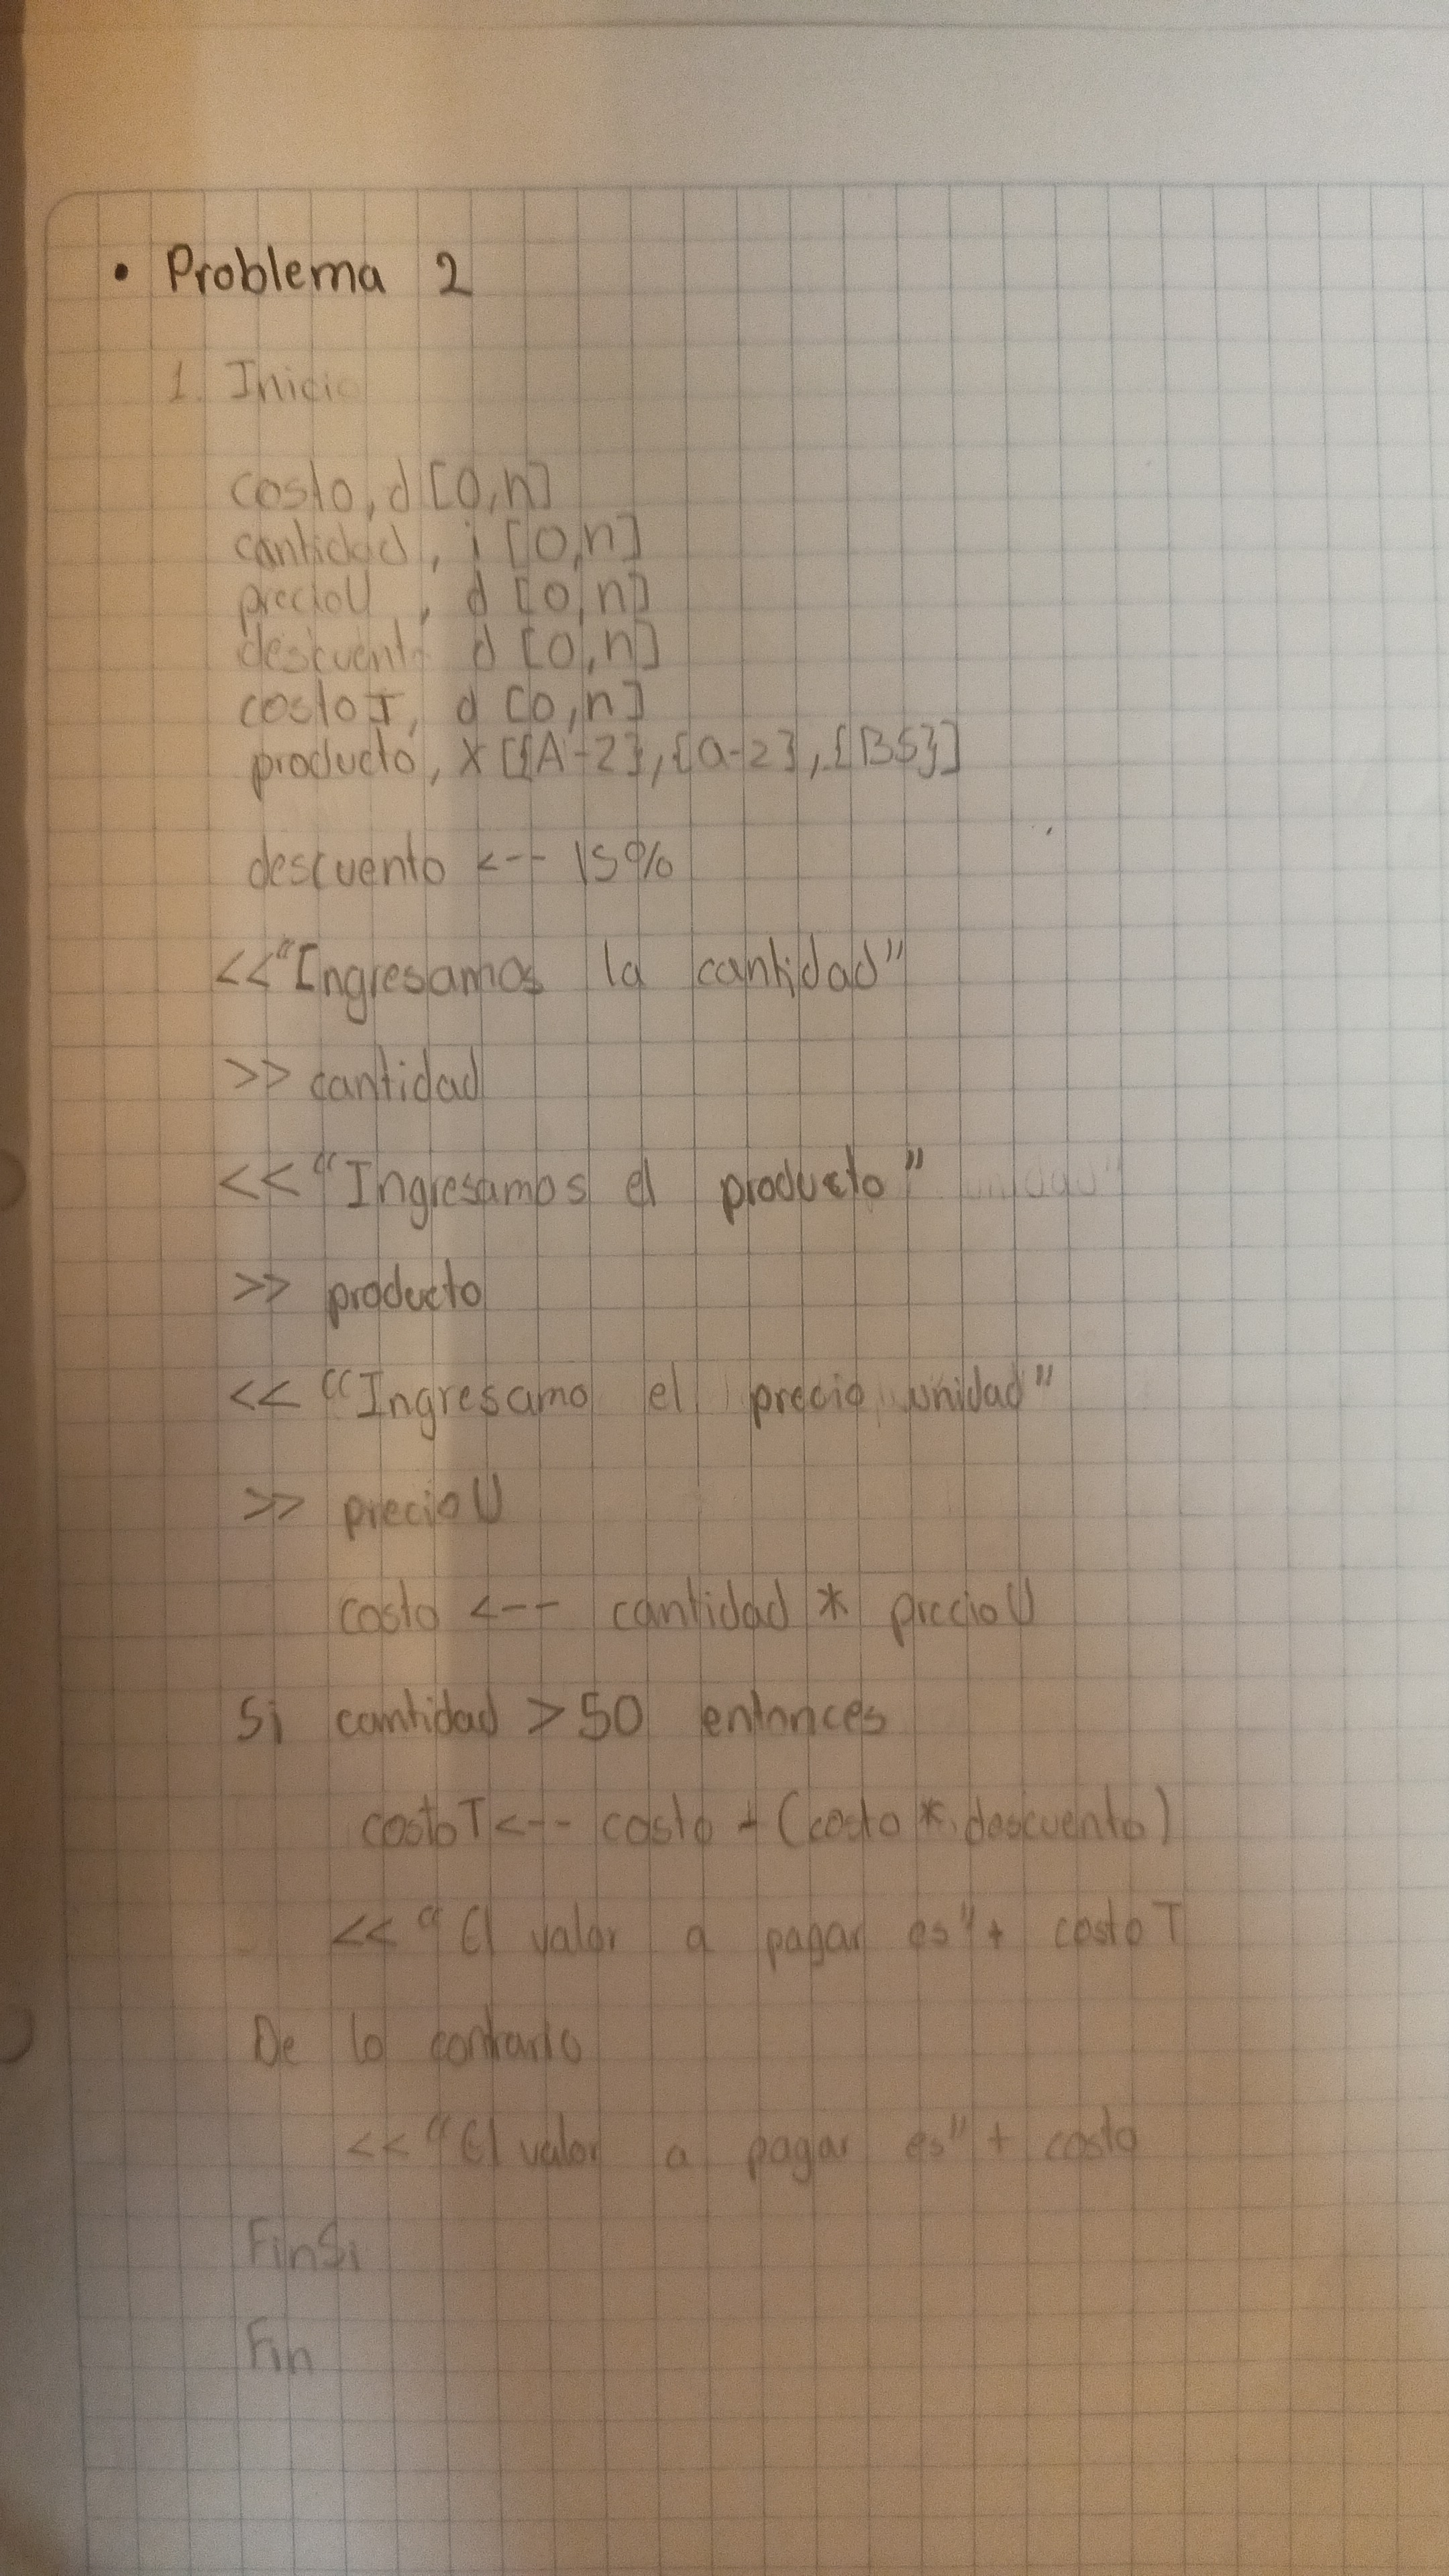 • Problema 2
1. Inicio
costo, d [0,n]
cantidad, i [0,n]
precioU, d [0,n]
descuento d [0,n]
costoT, d [0,n]
producto, X [{A-Z},{a-z},{BS}]
descuento <-- 15%
<<"Ingresamos la cantidad"
>> cantidad
<< "Ingresamos el producto" unidad"
>> producto
<< "Ingresamo el precio unidad"
>> precioU
costo <-- cantidad * precioU
Si cantidad > 50 entonces
costoT <-- costo - (costo * descuento)
<< "El valor a pagar es" + costoT
De lo contrario
<< "El valor a pagar es" + costo
FinSi
Fin